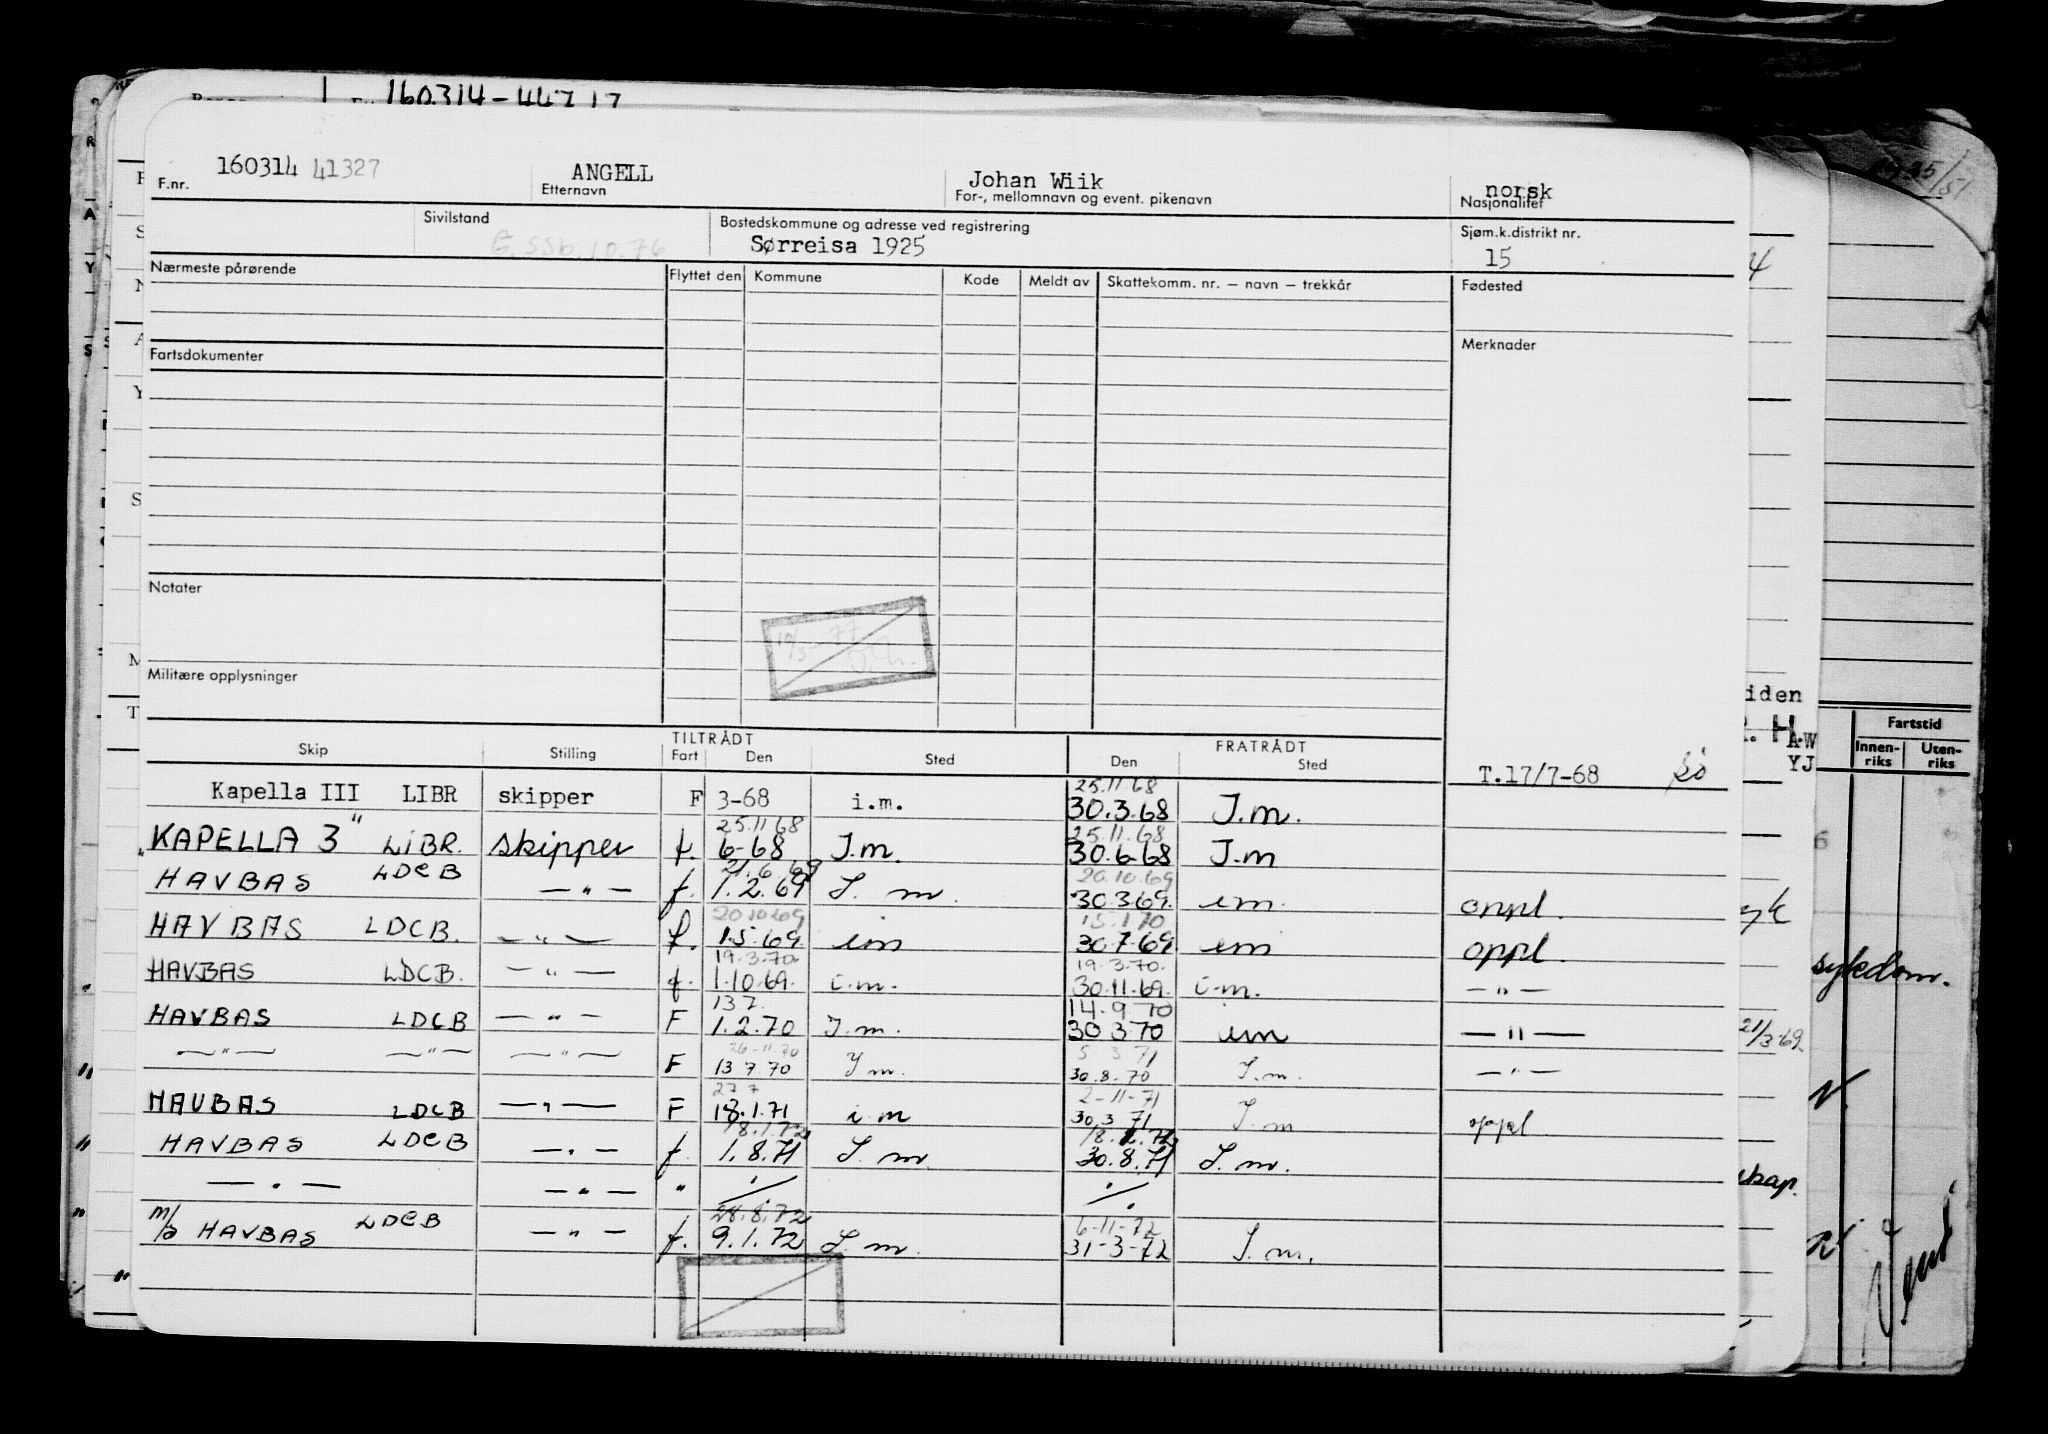 160314-44717
160314 41327 ANGELL Johan Wiik norsk
F.nr. Etternavn For-, mellomnavn og event. pikenavn Nasjonalitet
Sivilstand Bostedskommune og adresse ved registrering Sjøm.k.distrikt nr.
Sørreisa 1925 15
Nærmeste pårørende Flyttet den Kommune Kode Meldt av Skattekomm. nr. — navn — trekkår Fødested
Fartsdokumenter Merknader
Notater
Militære opplysninger
TILTRÅDT FRATRÅDT
Skip Stilling Fart Den Sted Den Sted
25.11.68
Kapella III LIBR skipper F 3-68 i.m. 30.3.68 I.m. T.17/7-68
25.11 68 25.11.68
"KAPELLA 3" LIBR. skipper f. 6-68 I.m. 30.6.68 I.m
21.6 69 20.10.69
HAVBAS LDCB —"— f. 1.2.69 I. m. 30.3.69. im. oppl.
20.10.69 15.1.70
HAVBAS LDCB. —"— f. 1.5.69. im 30.7.69 im oppl.
19.3.70. 19.3.70.
HAVBAS LDCB. —"— f. 1.10.69. i.m. 30.11.69. i.m. —"—
13 7. 14.9 70
HAVBAS LDCB —"— F 1.2.70 I.m. 30 3 70 im —"—
26-11-70 5 3 71
—"— —"— —"— F 13 7.70 I m. 30.8.70 I.m. —"—
27 7 2-11-71
HAVBAS LDCB —"— F 18.1.71 i m 30.3 71 I m oppl
18.1.72 18.1.72
HAVBAS LDCB —"— f. 1.8.71 I. m. 30.8.71 I. m.
—"— —"— " ·/· ·/·
28.8.72 6-11-72
m/s HAVBAS LDCB —"— f. 9.1.72 I. m. 31-3-72 I. m.
iden
Fartstid
Innen-riks Uten-riks
A-W
YJ
sykdom.
21/3-69.